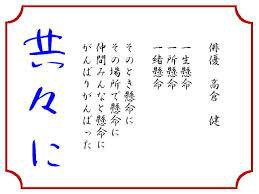 俳優　高倉　健
一生懸命
一所懸命
一緒懸命
そのとき懸命に
その場所で懸命に
仲間みんなと懸命に
がんばりがんばった
共々に